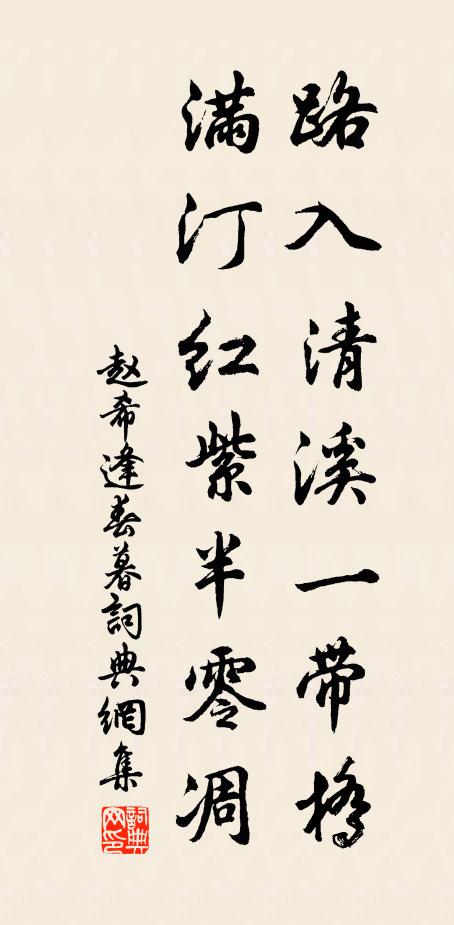 路入清溪一带橋
满汀红紫半零凋
赵希逢春暮詞典網集
詞典网印